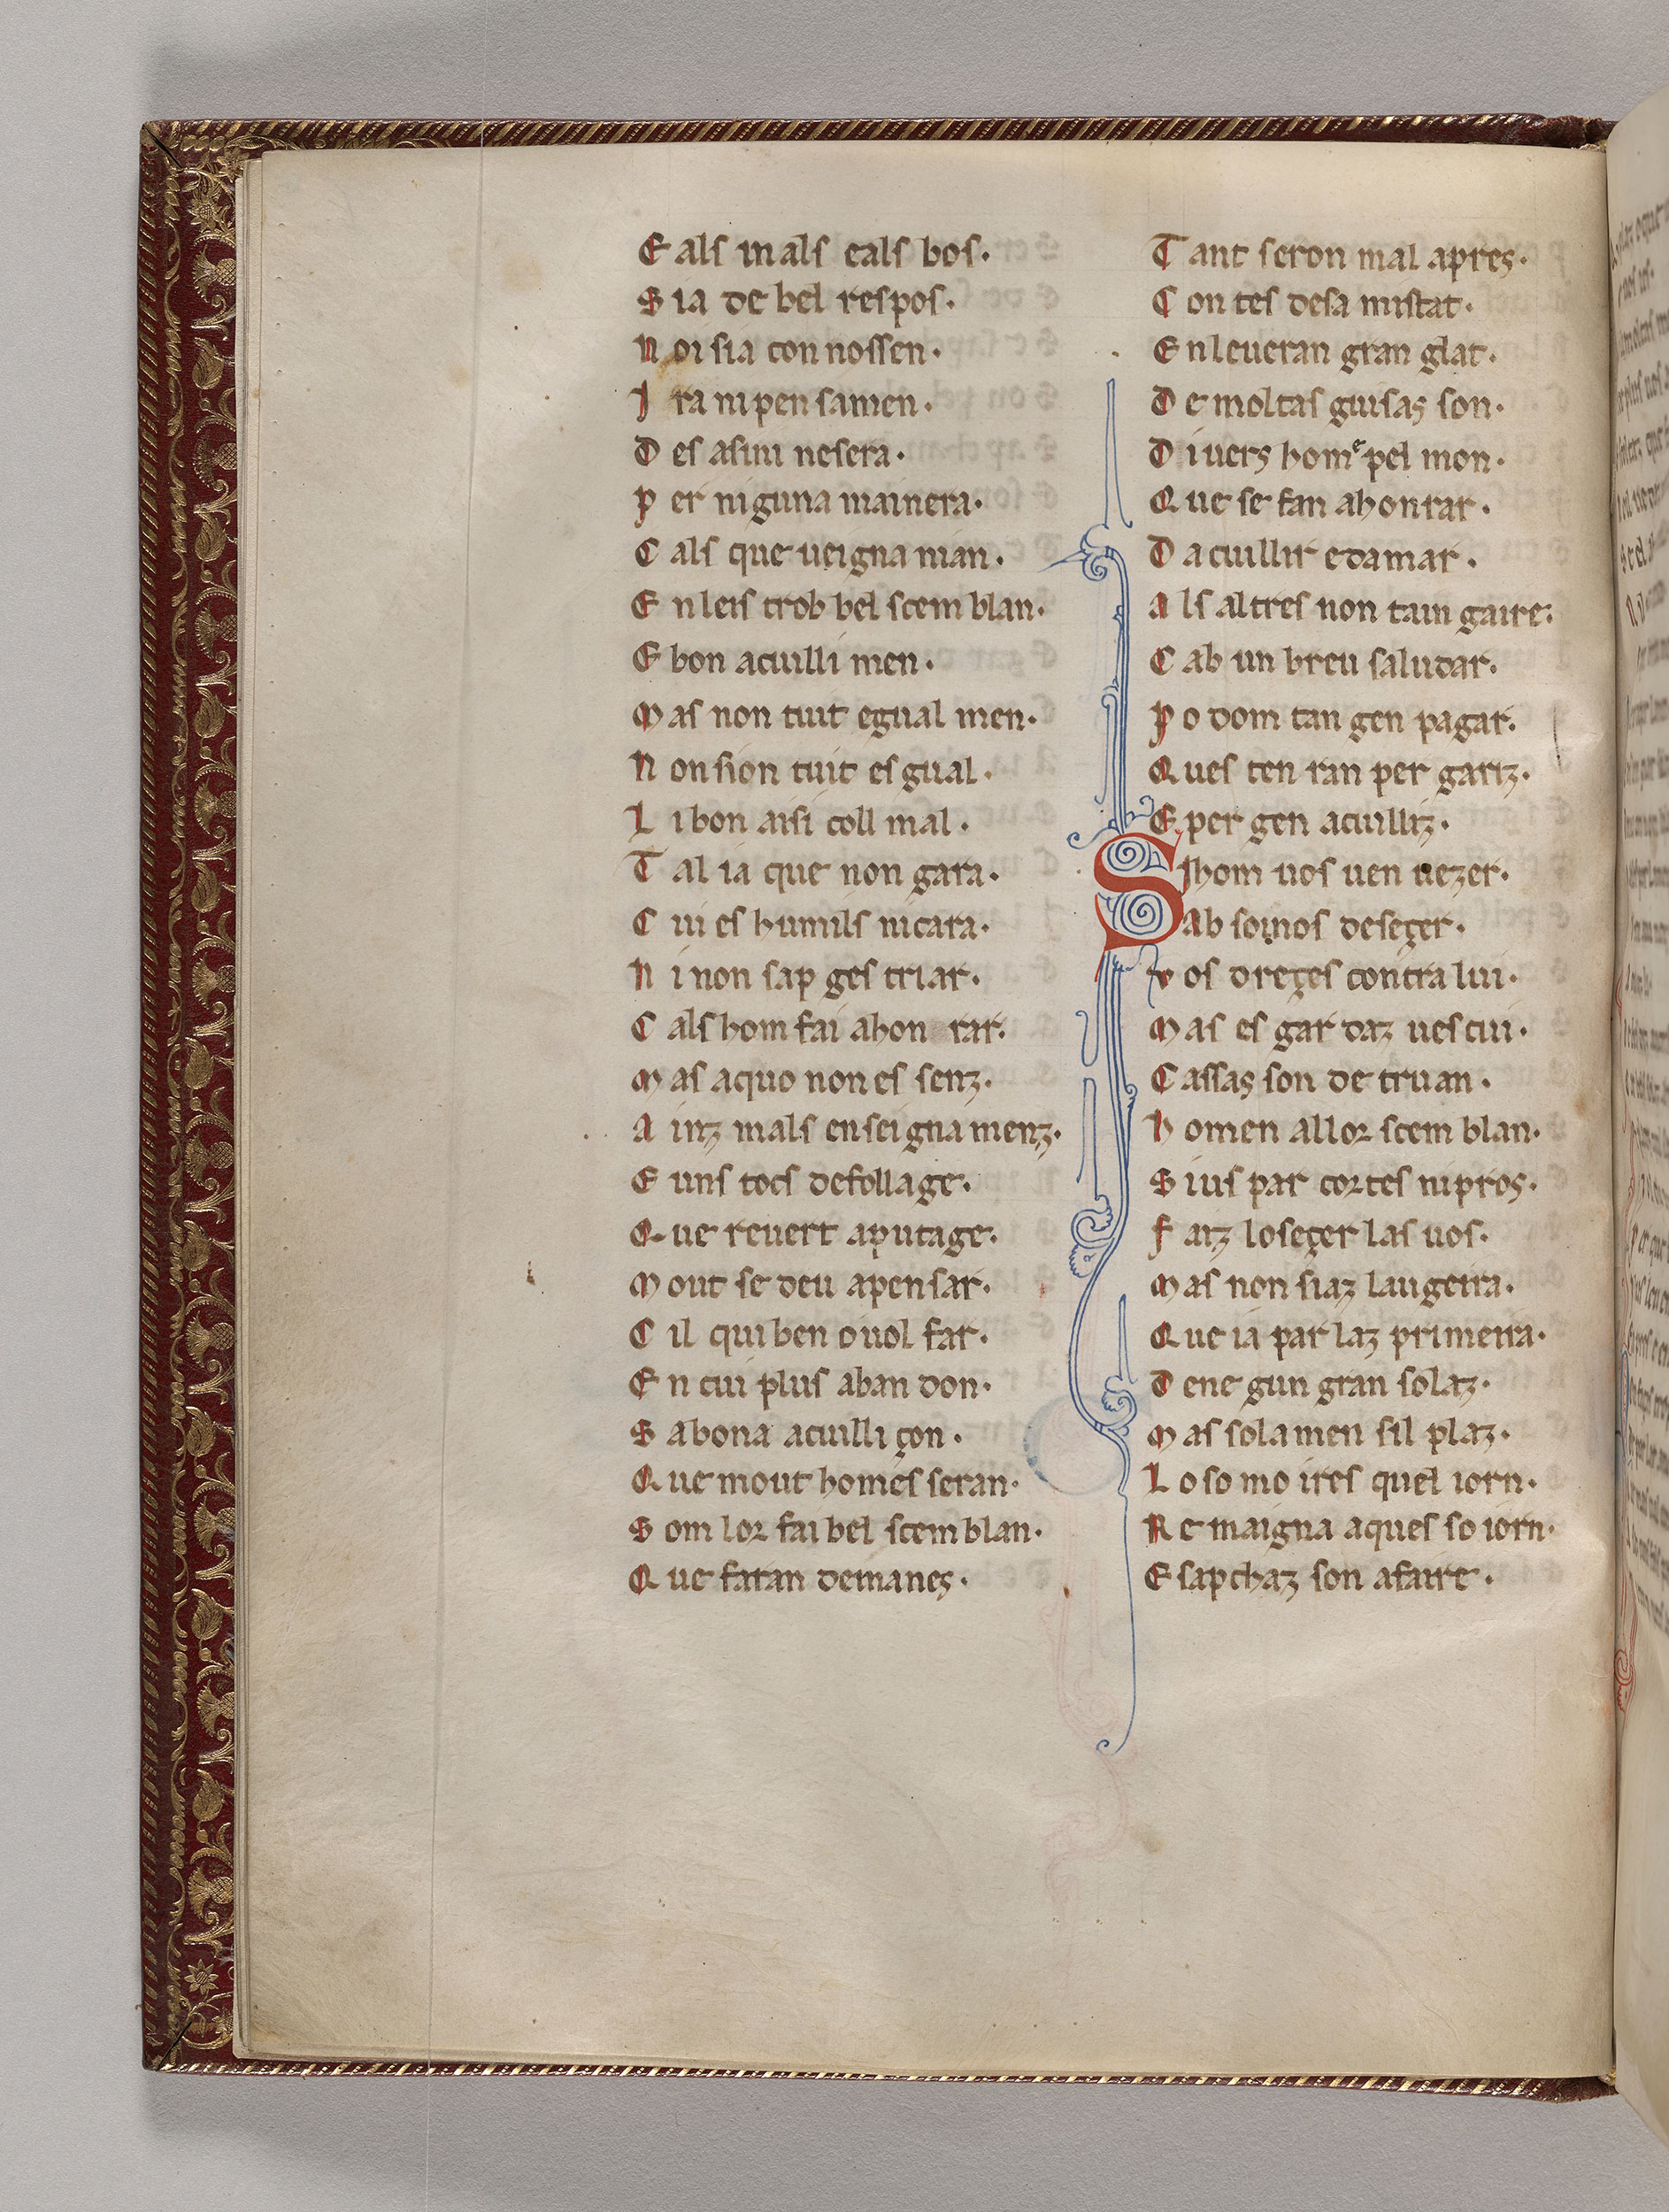 E als mals eals bos.
S ia de bel respos.
N oi sia con nossen.
I ra ni pen samen.
D es asini nesera.
P er niguna mainera.
C als que ueigna nian.
E n leis trob bel scem blan.
E bon acuilli men.
M as non tuit egual men.
N on sion tuit es gual.
L i bon aisi coll mal.
T al ia que non gara.
C ui es humils ni cara.
N i non sap ges triar.
C als hom fai ahon rar.
M as aquo non es senz.
A inz mals enseigna menz.
E uns tocs de follage.
Q ue reuert aputage.
M out se deu apensar.
C il qui ben o uol far.
E n cui plus aban don.
S a bona acuilli çon.
Q ue mout homes seran.
S om lor fai bel scem blan.
Q ue faran demanes.
T ant seron mal apres.
C on tes desa mistat.
E n leueran gran glat.
D e moltas guisas son.
D iuers home pel mon.
Q ue se fan ahonrar.
D acuillir edamar.
A ls altres non tain gaire.
C ab un breu saludar.
P o dom tan gen pagar.
Q ues ten ran per gariz.
E per gen acuilliz.
S ihom uos uen uezer.
ab so inos deseçer.
V os dreçes contra lui.
M as es gar daz ues cui.
C assas son de truan.
H omen allor scem blan.
S ius par cortes ni pros.
F aiz lo seçer las uos.
M as non siaz laugeira.
Q ue ia par laz primeira.
D ene gun gran solaz.
M as sola men sil plaz.
L o so mo ires quel iorn.
R e maigna aques so iorn.
E sapchaz son afaire.